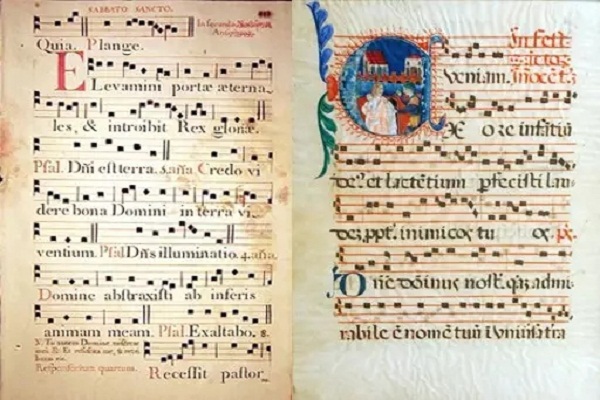 SABBATO SANCTO.
Quia. Plange.
ELevamini portæ æterna-
les, & introibit Rex gloriæ.
Psal. Dñi est terra. 3. aña. Credo vi
dere bona Domini in terra vi-
ventium. Psal Dñs illuminatio. 4. aña.
Domine abstraxisti ab inferis
animam meam. Psal. Exaltabo. 8.
Responsorium quartum.
Recessit pastor
In festo
Veniam.
EX ore infātiū
de? et lactētium pfecisti lau
dez. ppt. inimicos tu os. ps.
Dñe dominus nost. qz admi
rabile ē nomē tuū